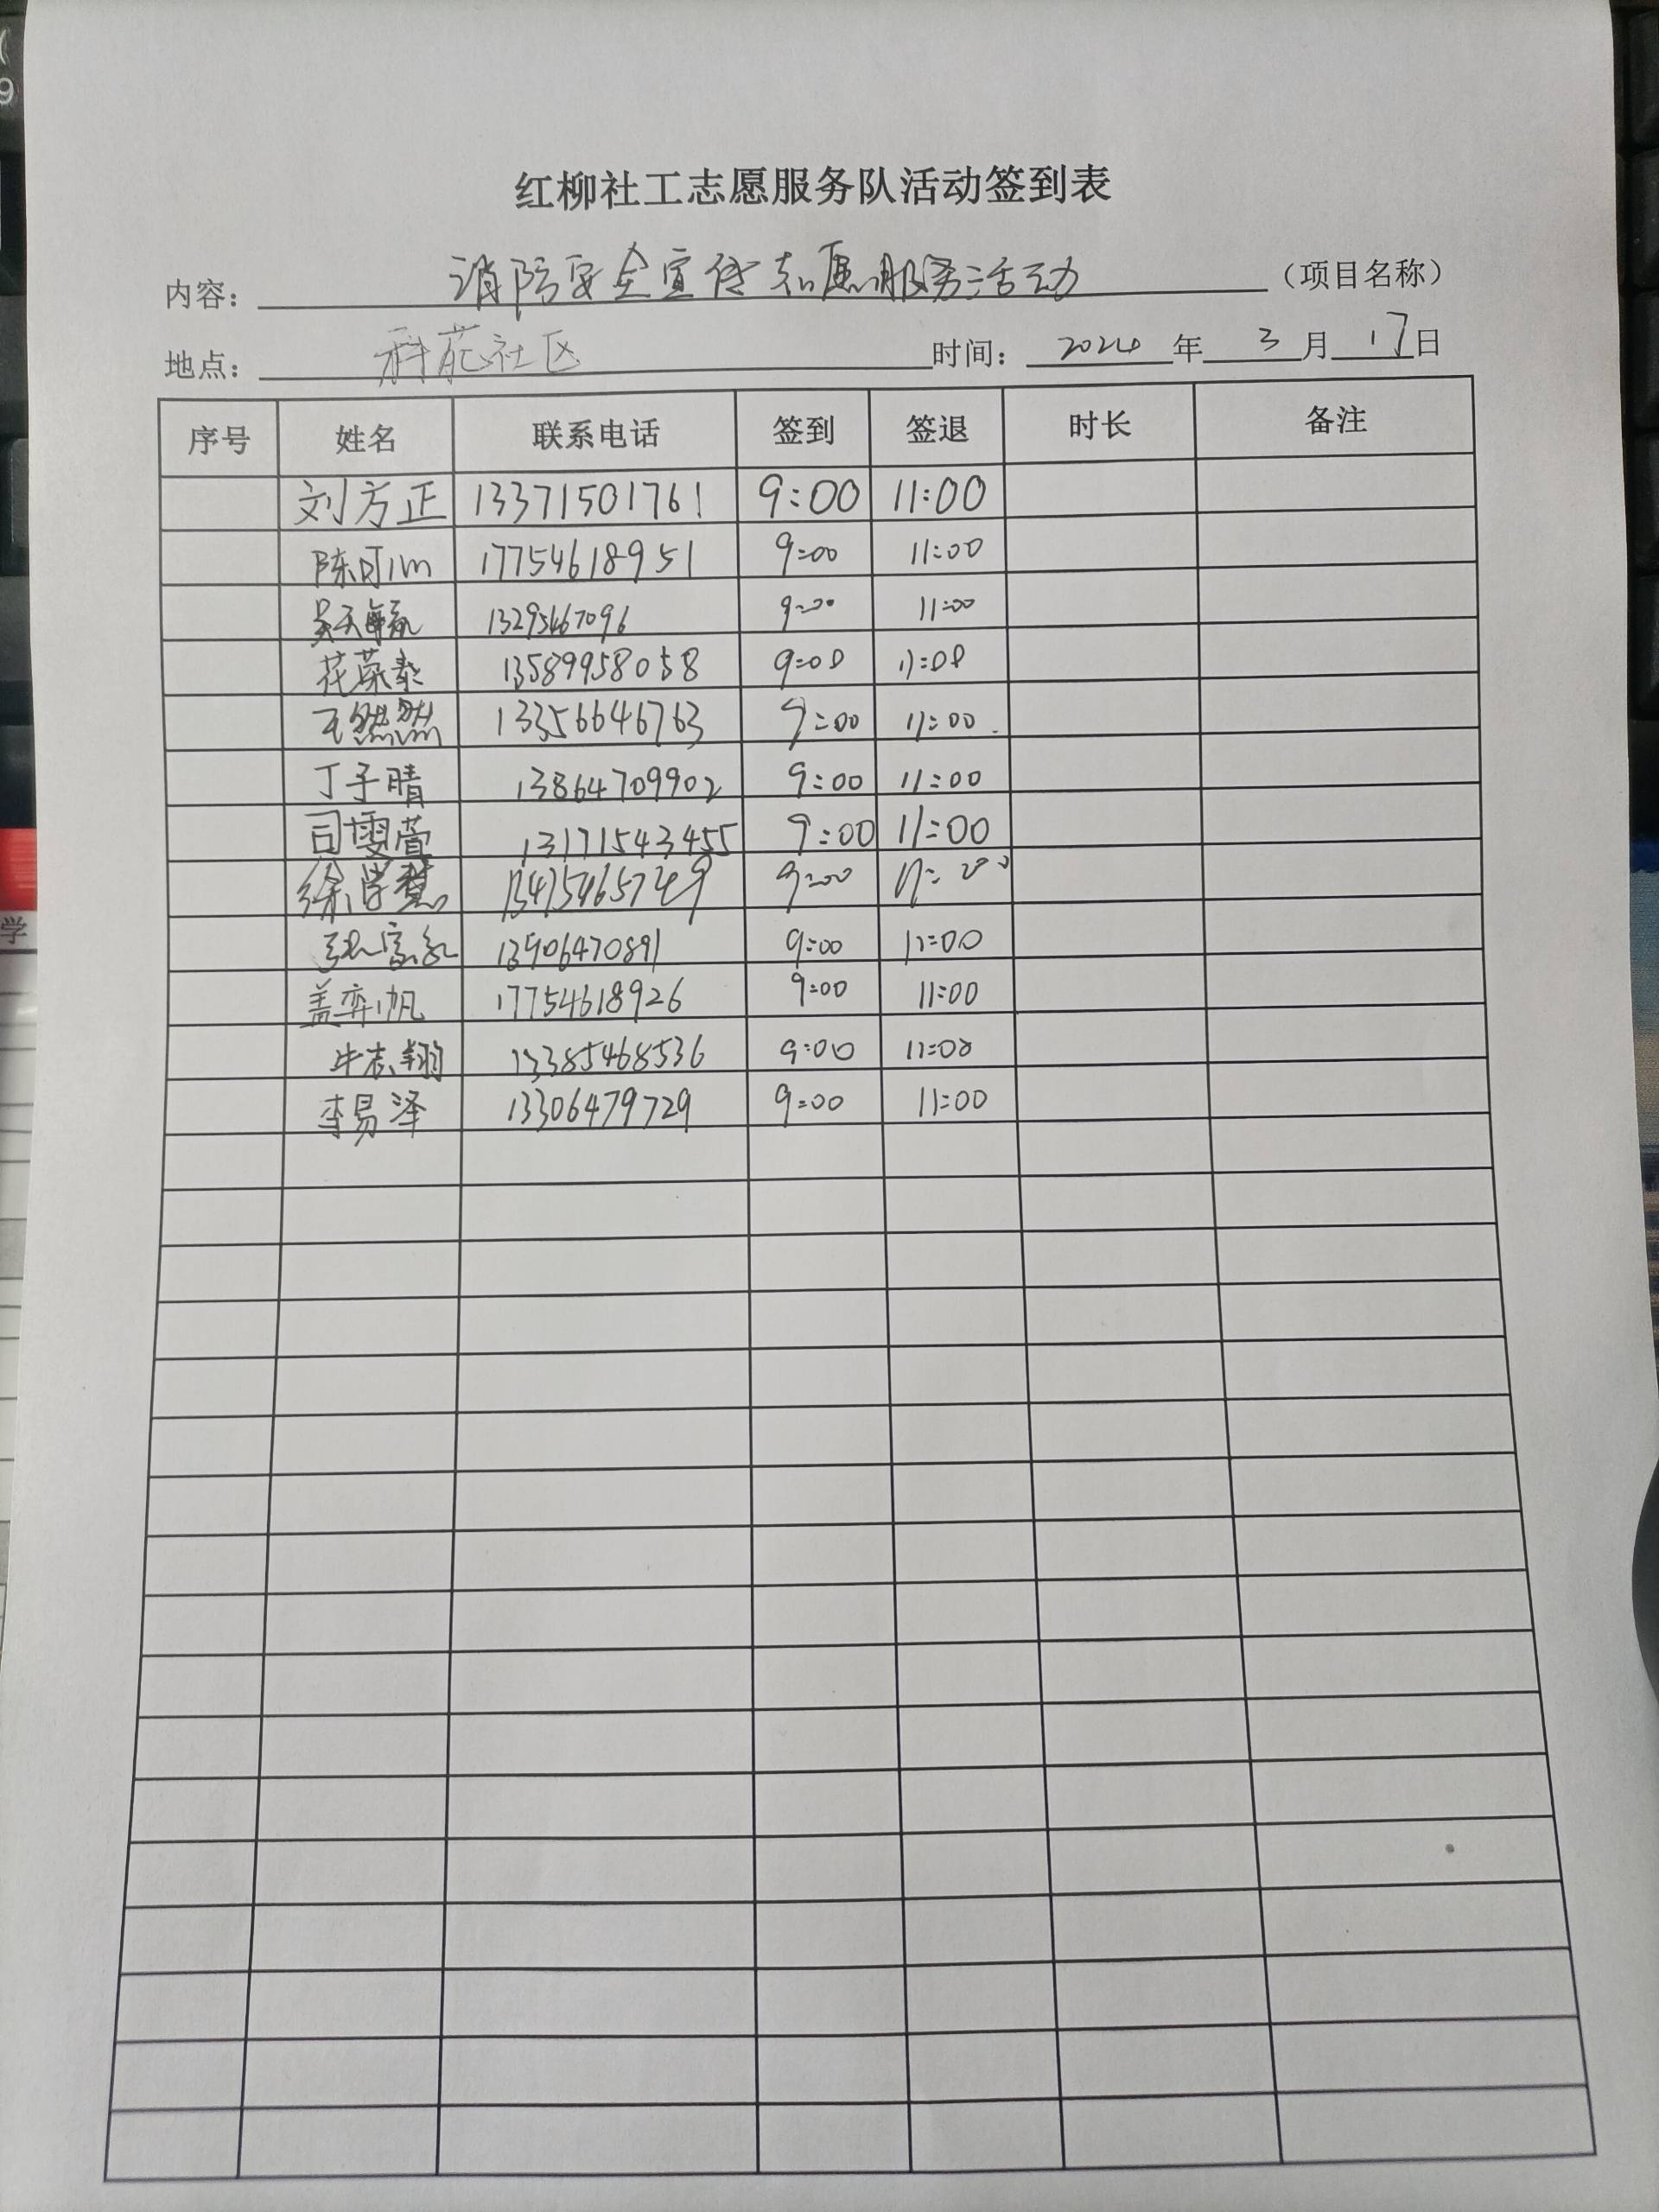 红柳社工志愿服务队活动签到表
内容： 消防安全宣传志愿服务活动 （项目名称）
地点： 科苑社区 时间： 2024 年 3 月 17 日
序号 姓名 联系电话 签到 签退 时长 备注
刘方正 13371501761 9:00 11:00
17754618951 9:00 11:00
13295467096 9:00 11:00
13589958058 9:00 11:00
王然然 13356646763 9:00 11:00
丁子晴 13864709902 9:00 11:00
司雯萱 13171543455 9:00 11:00
徐学慧 13475465749 9:00 11:00
张家 13906470891 9:00 11:00
盖弈帆 17754618926 9:00 11:00
牛志翔 13385468536 9:00 11:00
李易泽 13306479729 9:00 11:00
9
学